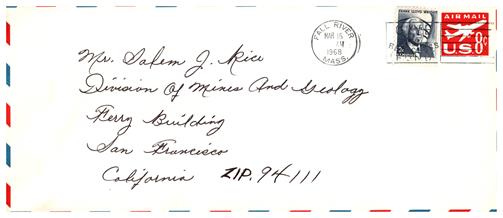 FRANK LLOYD WRIGHT
FALL RIVER
MAR 15
AM
1968
MASS.
AIR MAIL
U.S. 8¢
Mr. Salem J. Rice
Division Of Mines And Geology
Ferry Building
San Francisco
California ZIP. 94111